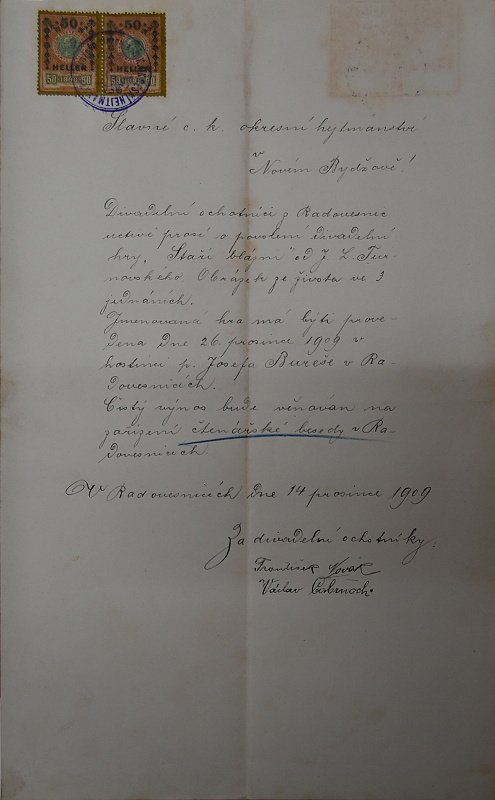 50 50
HELLER HELLER
50 50 50 50
Slavné c. k. okresní hejtmanství
v
Novém Bydžově!
Divadelní ochotníci z Radovesnic
uctivě prosí o povolení divadelní
hry, "Staří blázni" od J. L. Tur-
novského. Obrázek ze života ve 3
jednáních.
Jmenovaná hra má býti prove-
dena dne 26 prosince 1909 v
hostinci p. Josefa Bureše v Ra-
dovesnicích.
Čistý výnos bude věnován na
zařízení čtenářské besedy v Ra-
dovesnicích.
V Radovesnicích dne 14 prosince 1909
Za divadelní ochotníky:
František Novák
Václav